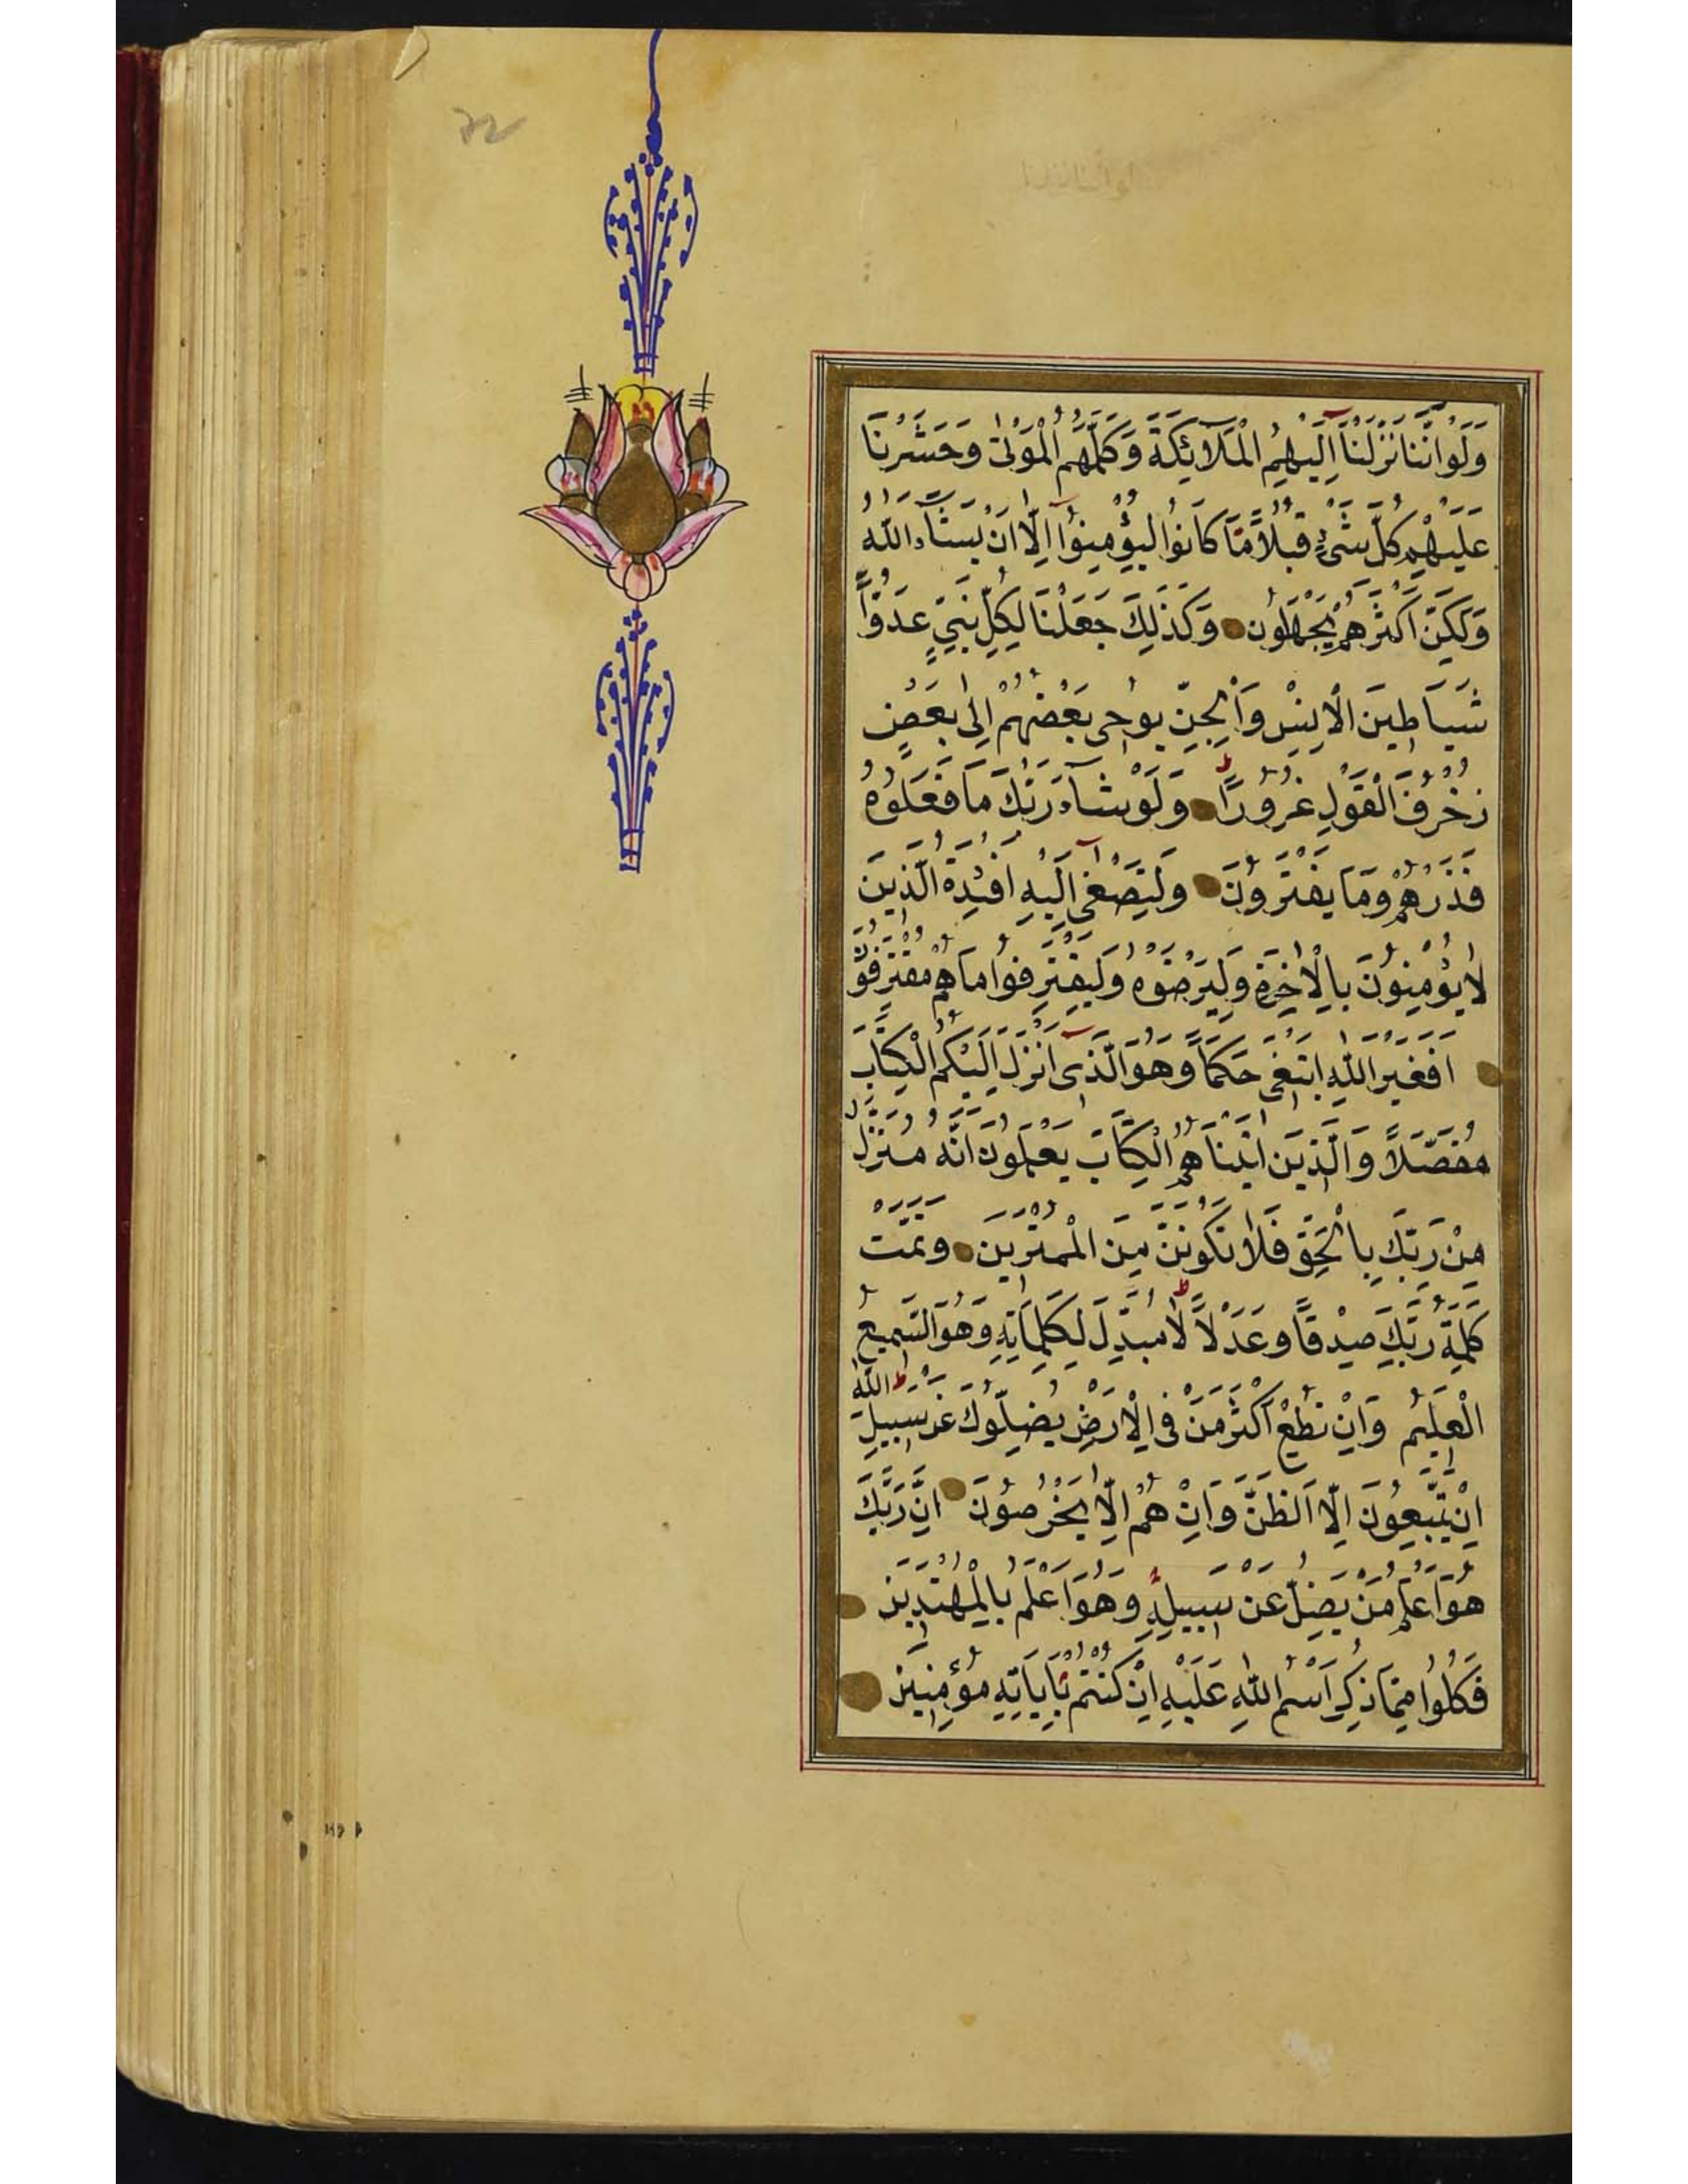 وَلَوْ اَنَّنَا نَزَّلْنَآ اِلَيْهِمُ الْمَلَآئِكَةَ وَكَلَّمَهُمُ الْمَوْتٰى وَحَشَرْنَا
عَلَيْهِمْ كُلَّ شَىْءٍ قُبُلاً مَّا كَانُوا لِيُؤْمِنُوٓا اِلَّا اَنْ يَشَآءَ اللّٰهُ
وَلَكِنَّ اَكْثَرَهُمْ يَجْهَلُونَ وَكَذَلِكَ جَعَلْنَا لِكُلِّ نَبِيٍّ عَدُوًّا
شَيَاطِينَ الْاِنْسِ وَالْجِنِّ يُوحِى بَعْضُهُمْ اِلٰى بَعْضٍ
زُخْرُفَ الْقَوْلِ غُرُورًا ط وَلَوْ شَآءَ رَبُّكَ مَا فَعَلُوهُ
فَذَرْهُمْ وَمَا يَفْتَرُونَ وَلِتَصْغٰىٓ اِلَيْهِ اَفْئِدَةُ الَّذِينَ
لَا يُؤْمِنُونَ بِالْاٰخِرَةِ وَلِيَرْضَوْهُ وَلِيَقْتَرِفُوا مَا هُمْ مُقْتَرِفُونَ
اَفَغَيْرَ اللّٰهِ اَبْتَغِى حَكَمًا وَهُوَ الَّذِىٓ اَنْزَلَ اِلَيْكُمُ الْكِتَابَ
مُفَصَّلاً وَالَّذِينَ اٰتَيْنَاهُمُ الْكِتَابَ يَعْلَمُونَ اَنَّهُ مُنَزَّلٌ
مِنْ رَبِّكَ بِالْحَقِّ فَلَا تَكُونَنَّ مِنَ الْمُمْتَرِينَ وَتَمَّتْ
كَلِمَةُ رَبِّكَ صِدْقًا وَعَدْلاً ط لَا مُبَدِّلَ لِكَلِمَاتِهِ وَهُوَ السَّمِيعُ
الْعَلِيمُ وَاِنْ تُطِعْ اَكْثَرَ مَنْ فِى الْاَرْضِ يُضِلُّوكَ عَنْ سَبِيلِ اللّٰهِ ط
اِنْ يَتَّبِعُونَ اِلَّا الظَّنَّ وَاِنْ هُمْ اِلَّا يَخْرُصُونَ اِنَّ رَبَّكَ
هُوَ اَعْلَمُ مَنْ يَضِلُّ عَنْ سَبِيلِهِ وَهُوَ اَعْلَمُ بِالْمُهْتَدِينَ
فَكُلُوا مِمَّا ذُكِرَ اسْمُ اللّٰهِ عَلَيْهِ اِنْ كُنْتُمْ بِاٰيَاتِهِ مُؤْمِنِينَ